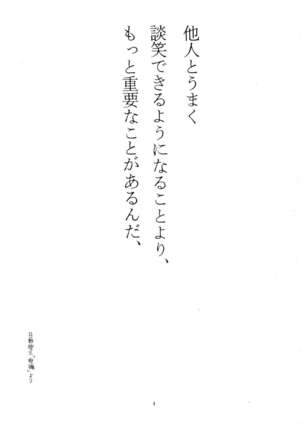 他人とうまく
談笑できるようになることより、
もっと重要なことがあるんだ、
より